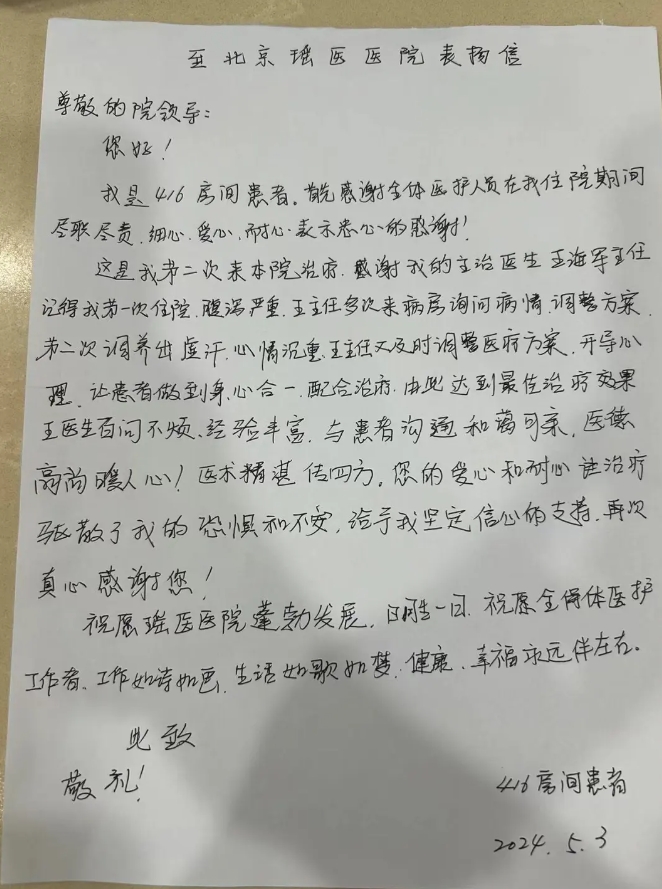 至北京瑶医医院表扬信
尊敬的院领导:
您好!
我是416房间患者。首先感谢全体医护人员在我住院期间
尽职尽责、细心、爱心、耐心表示忠心的感谢!
这是我第二次来本院治疗.感谢我的主治医生王海军主任
记得我第一次住院.腹泻严重.王主任多次来病房询问病情.调整方案.
第二次调养出虚汗.心情沉重.王主任又及时调整医疗方案.开导心
理.让患者做到身心合一.配合治疗.由此达到最佳治疗效果
王医生百问不烦、经验丰富.与患者沟通和蔼可亲.医德
高尚暖人心!医术精湛传四方。您的爱心和耐心让治疗
驱散了我的恐惧和不安.给予我坚定信心的支持.再次
真心感谢您!
祝愿瑶医医院蓬勃发展.日胜一日.祝愿全体医护
工作者、工作如诗如画.生活如歌如梦.健康、幸福永远伴左右。
此致
敬礼!
416房间患者
2024.5.3